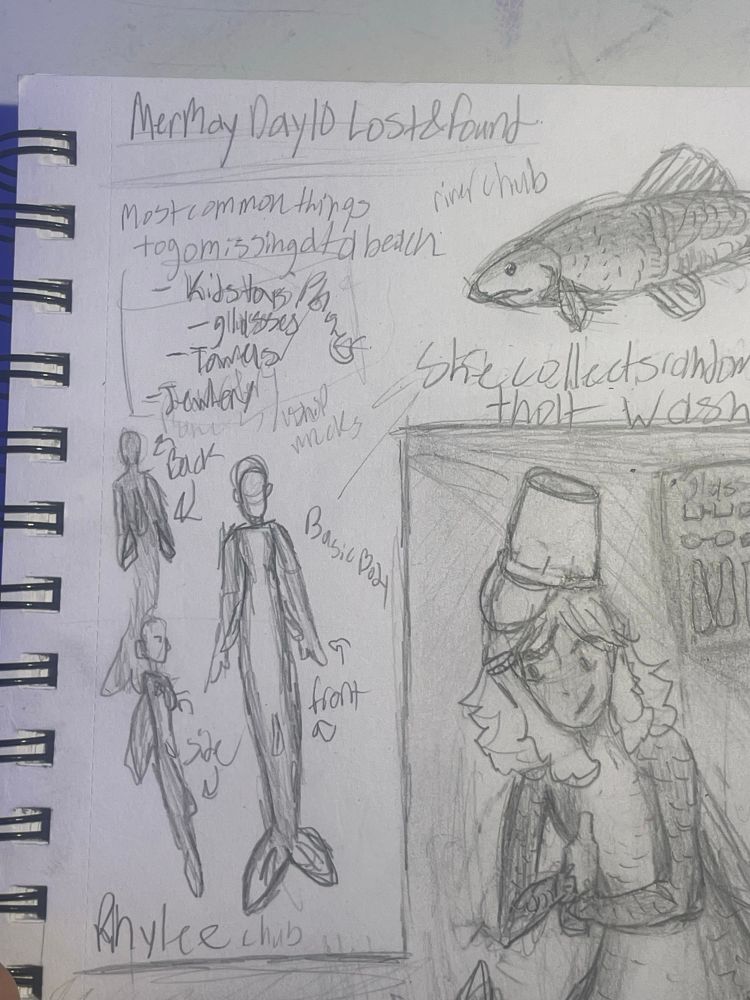 MerMay Day 10 Lost & Found
Most common things
to go missing at a beach
- Kids toys
- glasses
- Towels
- Jewlery
ship
wrecks
river chub
She collects random
that wash
Back
Basic Body
front
side
glas
Rhylee chub